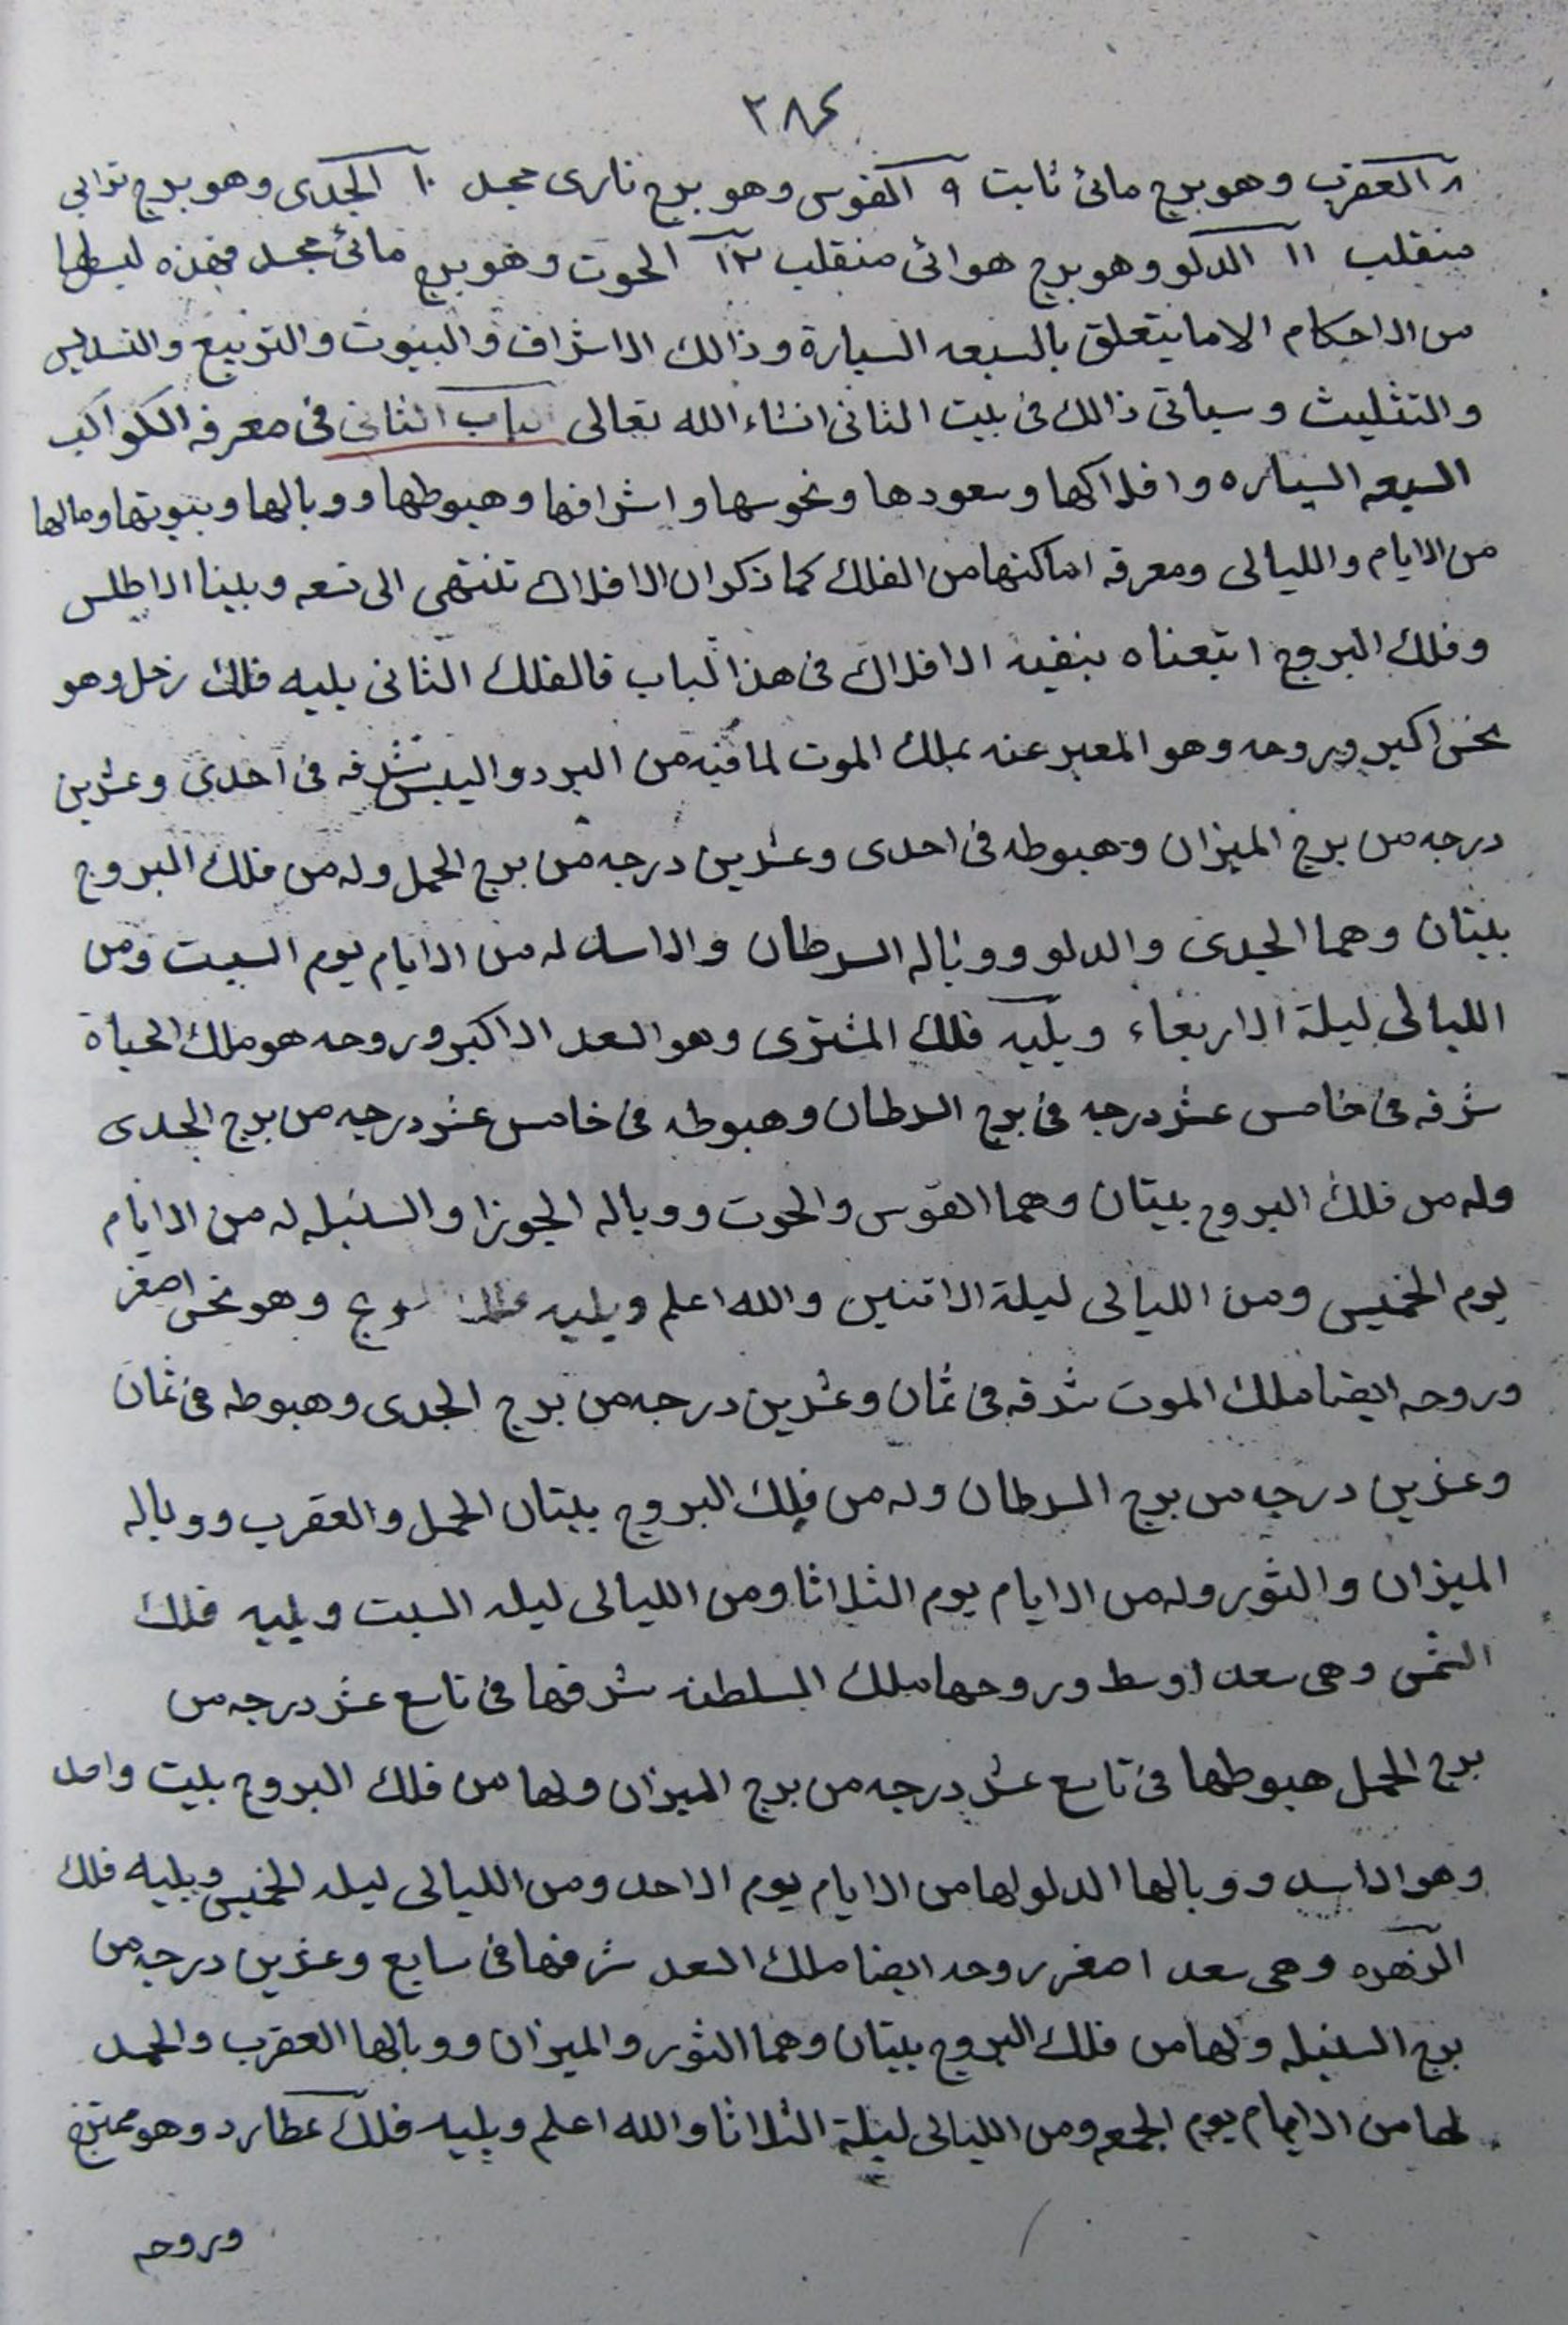 ٣٨٤
٨ العقرب وهو برج مائئ ثابت ٩ القوس وهو برج نارى مجسد ١٠ الجدى وهو برج ترابى
منقلب ١١ الدلو وهو برج هوائى منقلب ١٢ الحوت وهو برج مائئ مجسد فهذه ليس لها
من الاحكام الا ما يتعلق بالسبعه السيارة وذالك الاشراف والبيوت والتربيع والتسديس
والتثليث وسياتى ذالك فى بيت الثانى انشاء الله تعالى الباب الثانى فى معرفه الكواكب
السبعه السياره وافلاكها وسعودها ونحوسها واشرافها وهبوطها ووبالها وبيوتها ومالها
من الايام والليالى ومعرفه اماكنها من الفلك كما ذكر ان الافلاك تنتهى الى تسعه وبينا الاطلس
وفلك البروج اتبعناه ببقيه الافلاك فى هذا لباب فالفلك الثانى يليه فلك زحل وهو
نحس اكبر وروحه وهو المعبر عنه بملك الموت لما فيه من البرد واليبس شرفه فى احدى وعشرين
درجه من برج الميزان وهبوطه فى احدى وعشرين درجه من برج الحمل وله من فلك البروج
بيتان وهما الجدى والدلو ووباله السرطان والاسد له من الايام يوم السبت ومن
الليالى ليلة الاربعاء ويليه فلك المشترى وهو السعد الاكبر وروحه هو ملك الحياة
شرفه فى خامس عشر درجه فى برج السرطان وهبوطه فى خامس عشر درجه من برج الجدى
وله من فلك البروج بيتان وهما القوس والحوت ووباله الجوزا والسنبله له من الايام
يوم الخميس ومن الليالى ليلة الاتنين والله اعلم ويليه فلك وهو نحس اصغر
وروحه ايضا ملك الموت شرفه فى ثمان وعشرين درجه من برج الجدى وهبوطه فى ثمان
وعشرين درجه من برج السرطان وله من فلك البروج بيتان الحمل والعقرب ووباله
الميزان والثور وله من الايام يوم الثلاثا ومن الليالى ليله السبت ويليه فلك
الشمس وهى سعد اوسط وروحها ملك السلطنه شرفها فى تاسع عشر درجه من
برج الحمل هبوطها فى تاسع عشر درجه من برج الميزان ولها من فلك البروج بيت واحد
وهو الاسد ووبالها الدلو لها من الايام يوم الاحد ومن الليالى ليله الخميس ويليه فلك
الزهره وهى سعد اصغر روحه ايضا ملك السعد شرفها فى سابع وعشرين درجه من
برج السنبله ولها من فلك البروج بيتان وهما الثور والميزان ووبالها العقرب والحمل
لها من الايام يوم الجمعه ومن الليالى ليلة الثلاثا والله اعلم ويليه فلك عطارد وهو ممتزج
وروحه